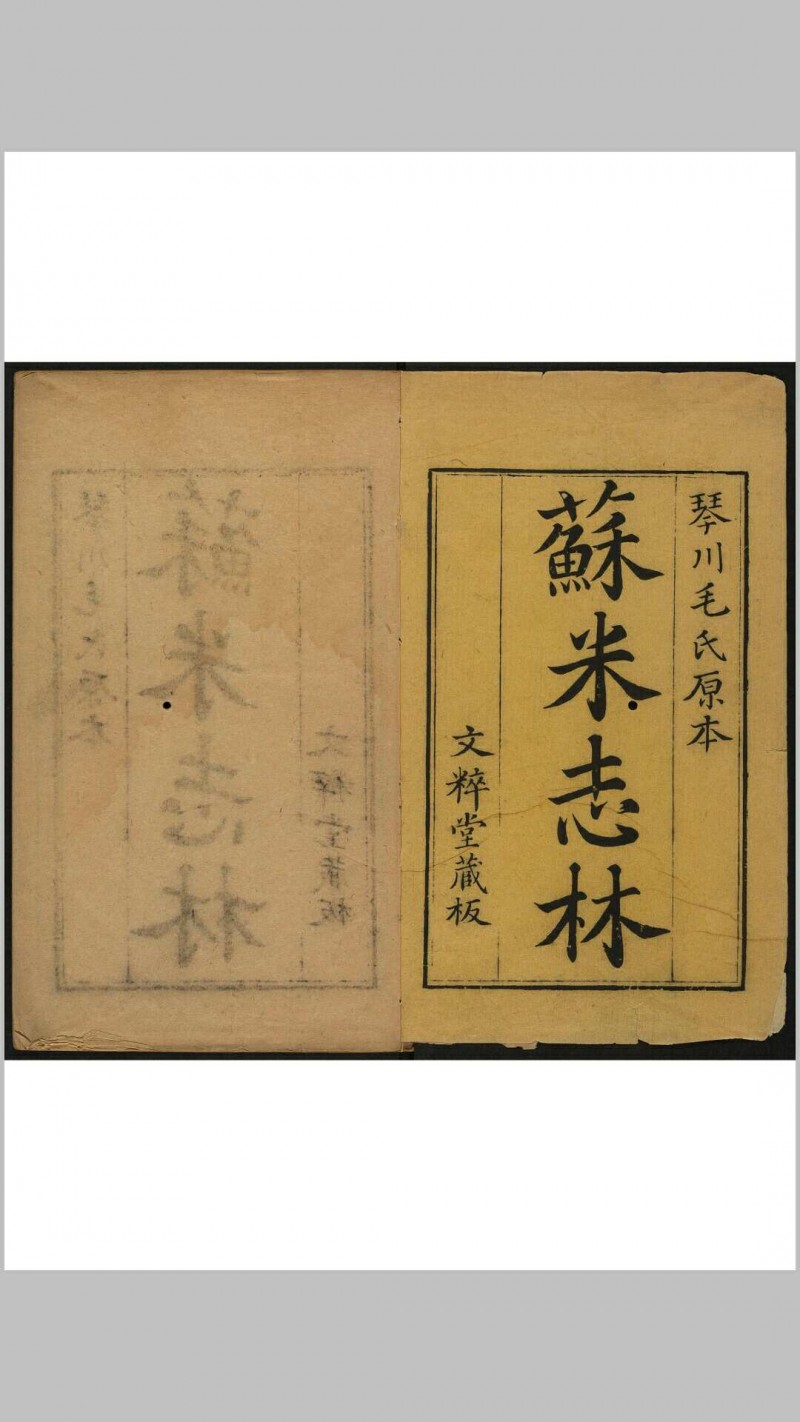 琴川毛氏原本
蘇米志林
文粹堂藏板